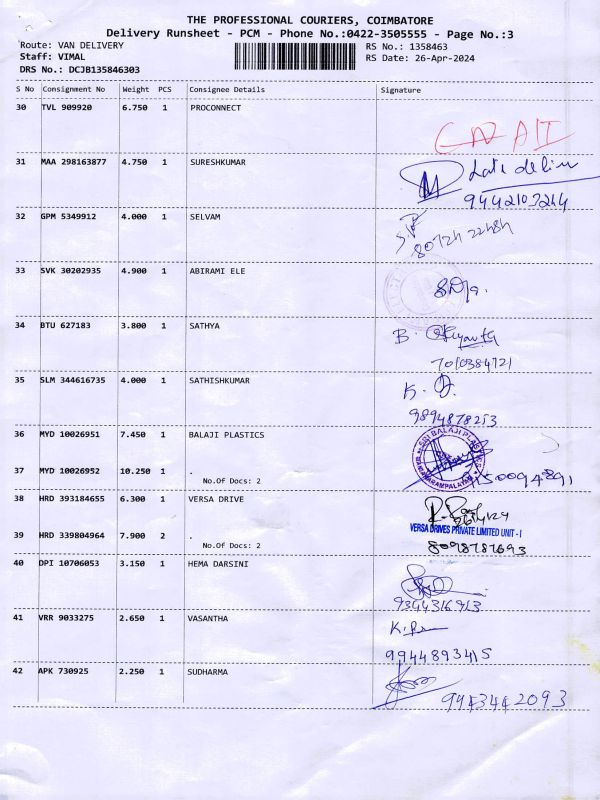 THE PROFESSIONAL COURIERS, COIMBATORE
Delivery Runsheet - PCM - Phone No.:0422-3505555 - Page No.:3
Route: VAN DELIVERY
RS No.: 1358463
Staff: VIMAL
RS Date: 26-Apr-2024
DRS No.: DCJB135846303
S No Consignment No Weight PCS Consignee Details Signature
30 TVL 909920 6.750 1 PROCONNECT
31 MAA 298163877 4.750 1 SURESHKUMAR
9442107244
32 GPM 5349912 4.000 1 SELVAM
33 SVK 30202935 4.900 1 ABIRAMI ELE
34 BTU 627183 3.800 1 SATHYA
B.
7010384721
35 SLM 344616735 4.000 1 SATHISHKUMAR
K.
9894878253
36 MYD 10026951 7.450 1 BALAJI PLASTICS
SRI BALAJI PLASTICS
37 MYD 10026952 10.250 1 .
No.Of Docs: 2
38 HRD 393184655 6.300 1 VERSA DRIVE
VERSA DRIVES PRIVATE LIMITED UNIT - I
39 HRD 339804964 7.900 2 .
8098787693
No.Of Docs: 2
40 DPI 10706053 3.150 1 HEMA DARSINI
9344316913
41 VRR 9033275 2.650 1 VASANTHA
9944893415
42 APK 730925 2.250 1 SUDHARMA
9943442093